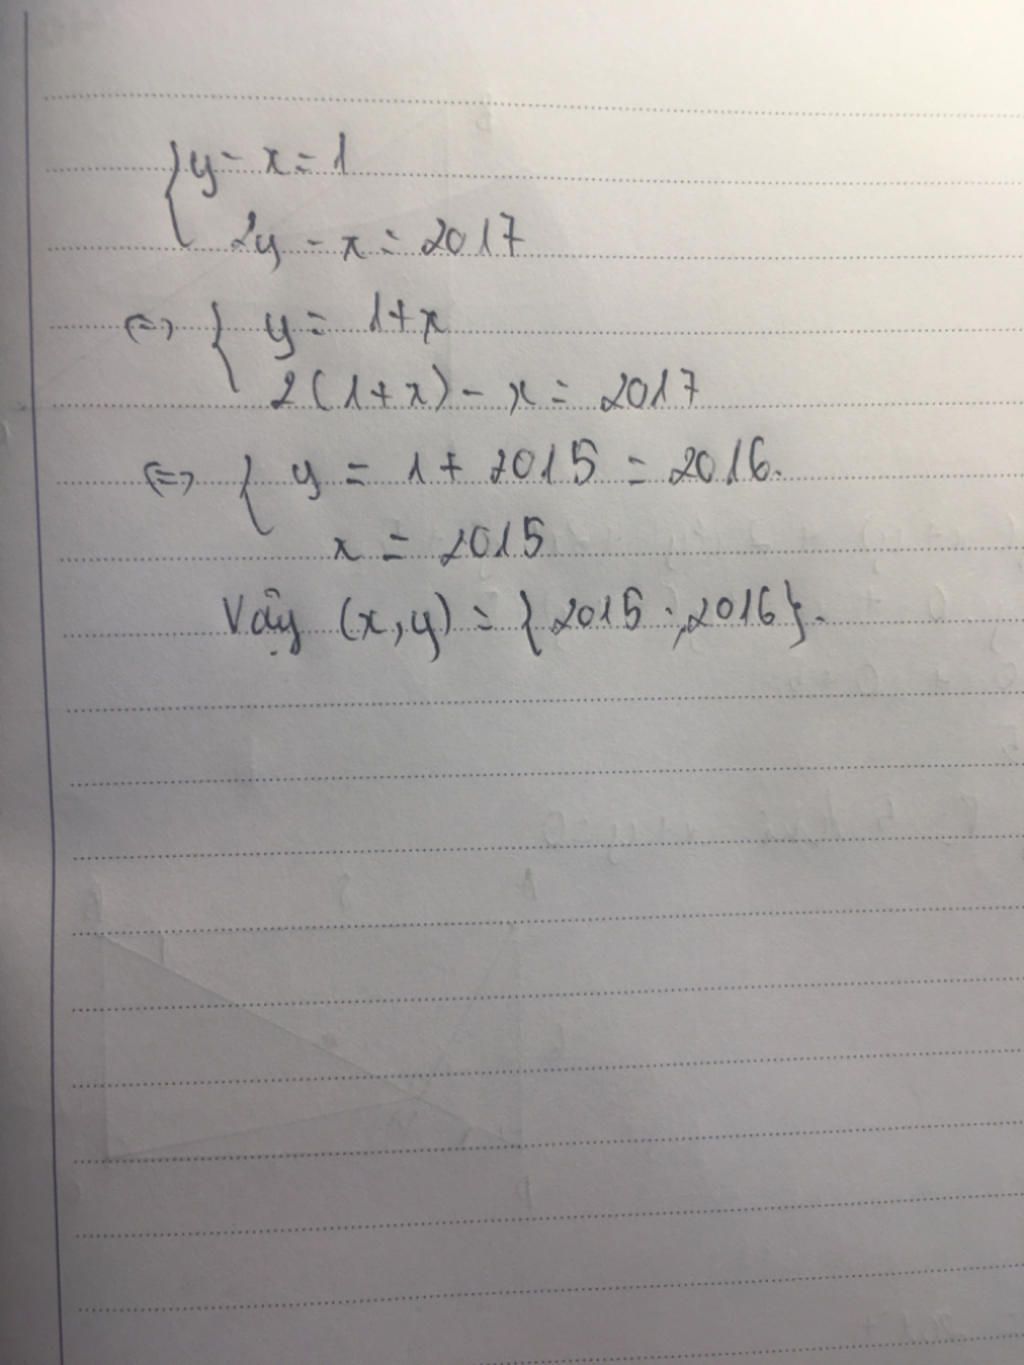 { y - x = 1
2y - x = 2017
<=> { y = 1 + x
2(1 + x) - x = 2017
<=> { y = 1 + 2015 = 2016.
x = 2015
Vậy (x, y) = {2015 ; 2016}.